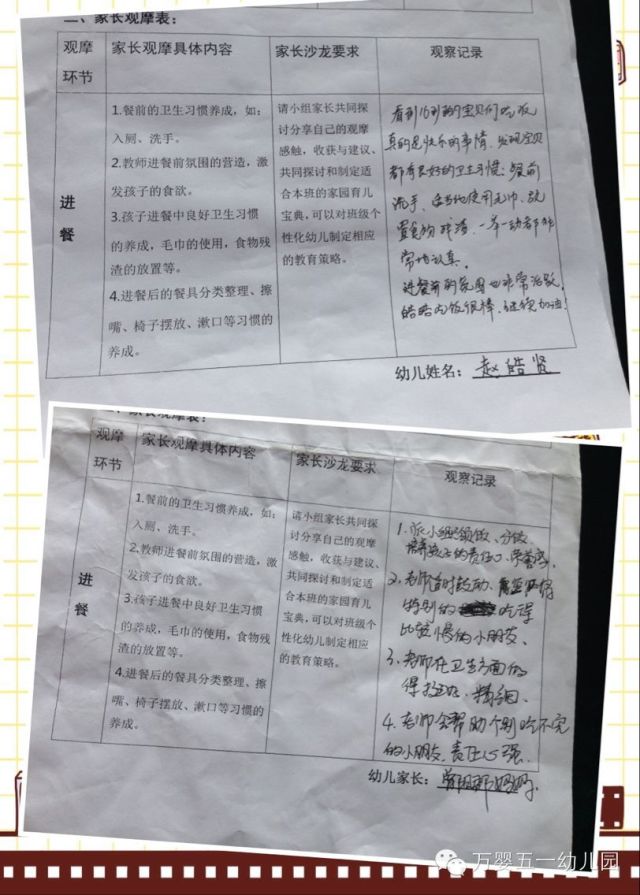 二、家长观摩表：
观摩环节
家长观摩具体内容
家长沙龙要求
观察记录
进餐
1.餐前的卫生习惯养成，如：
入厕、洗手。
2.教师进餐前氛围的营造，激
发孩子的食欲。
3.孩子进餐中良好卫生习惯
的养成，毛巾的使用，食物残
渣的放置等。
4.进餐后的餐具分类整理、擦
嘴、椅子摆放、漱口等习惯的
养成。
请小组家长共同探
讨分享自己的观摩
感触，收获与建议、
共同探讨和制定适
合本班的家园育儿
宝典，可以对班级个
性化幼儿制定相应
的教育策略。
看到 宝贝们吃饭
真的是快乐的事情，发现宝贝
都有良好的卫生习惯：餐前
洗手、 使用毛巾、放
置食物残渣，一举一动都非
常地认真。
进餐前的氛围也非常活跃，
皓皓吃饭很棒，继续加油！
幼儿姓名：赵皓贤
家长观摩表：
观摩环节
家长观摩具体内容
家长沙龙要求
观察记录
进餐
1.餐前的卫生习惯养成，如：
入厕、洗手。
2.教师进餐前氛围的营造，激
发孩子的食欲。
3.孩子进餐中良好卫生习惯
的养成，毛巾的使用，食物残
渣的放置等。
4.进餐后的餐具分类整理、擦
嘴、椅子摆放、漱口等习惯的
养成。
请小组家长共同探
讨分享自己的观摩
感触，收获与建议、
共同探讨和制定适
合本班的家园育儿
宝典，可以对班级个
性化幼儿制定相应
的教育策略。
1.派小组领做、分饭
培养孩子的责任心、荣誉感。
2.老师适时鼓励，
特别的 吃得
比较慢的小朋友、
3.老师在卫生方面做
得挺好、精细
4.老师会帮助个别吃不完
的小朋友，责任心强.
幼儿家长： 妈妈.
万婴五一幼儿园